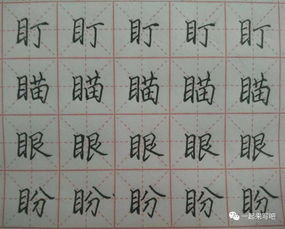 盯盯盯盯盯
瞄瞄瞄瞄瞄
眼眼眼眼眼
盼盼盼盼盼
一起来写吧